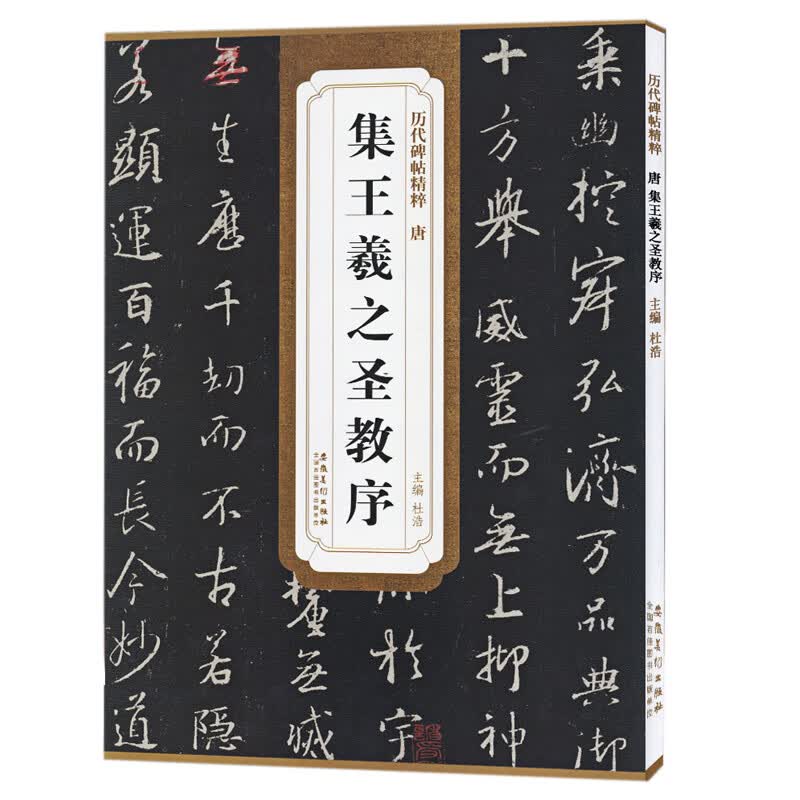 乘幽控寂弘濟万品典御
十方舉威靈而無上抑神
於宇
攝無滅
無生歷千劫而不古若隱
若顯運百福而長今妙道
历代碑帖精粹 唐
集王羲之圣教序
主编 杜浩
安徽美术出版社
全国百佳图书出版单位
历代碑帖精粹 唐 集王羲之圣教序 主编 杜浩
安徽美术出版社
全国百佳图书出版单位